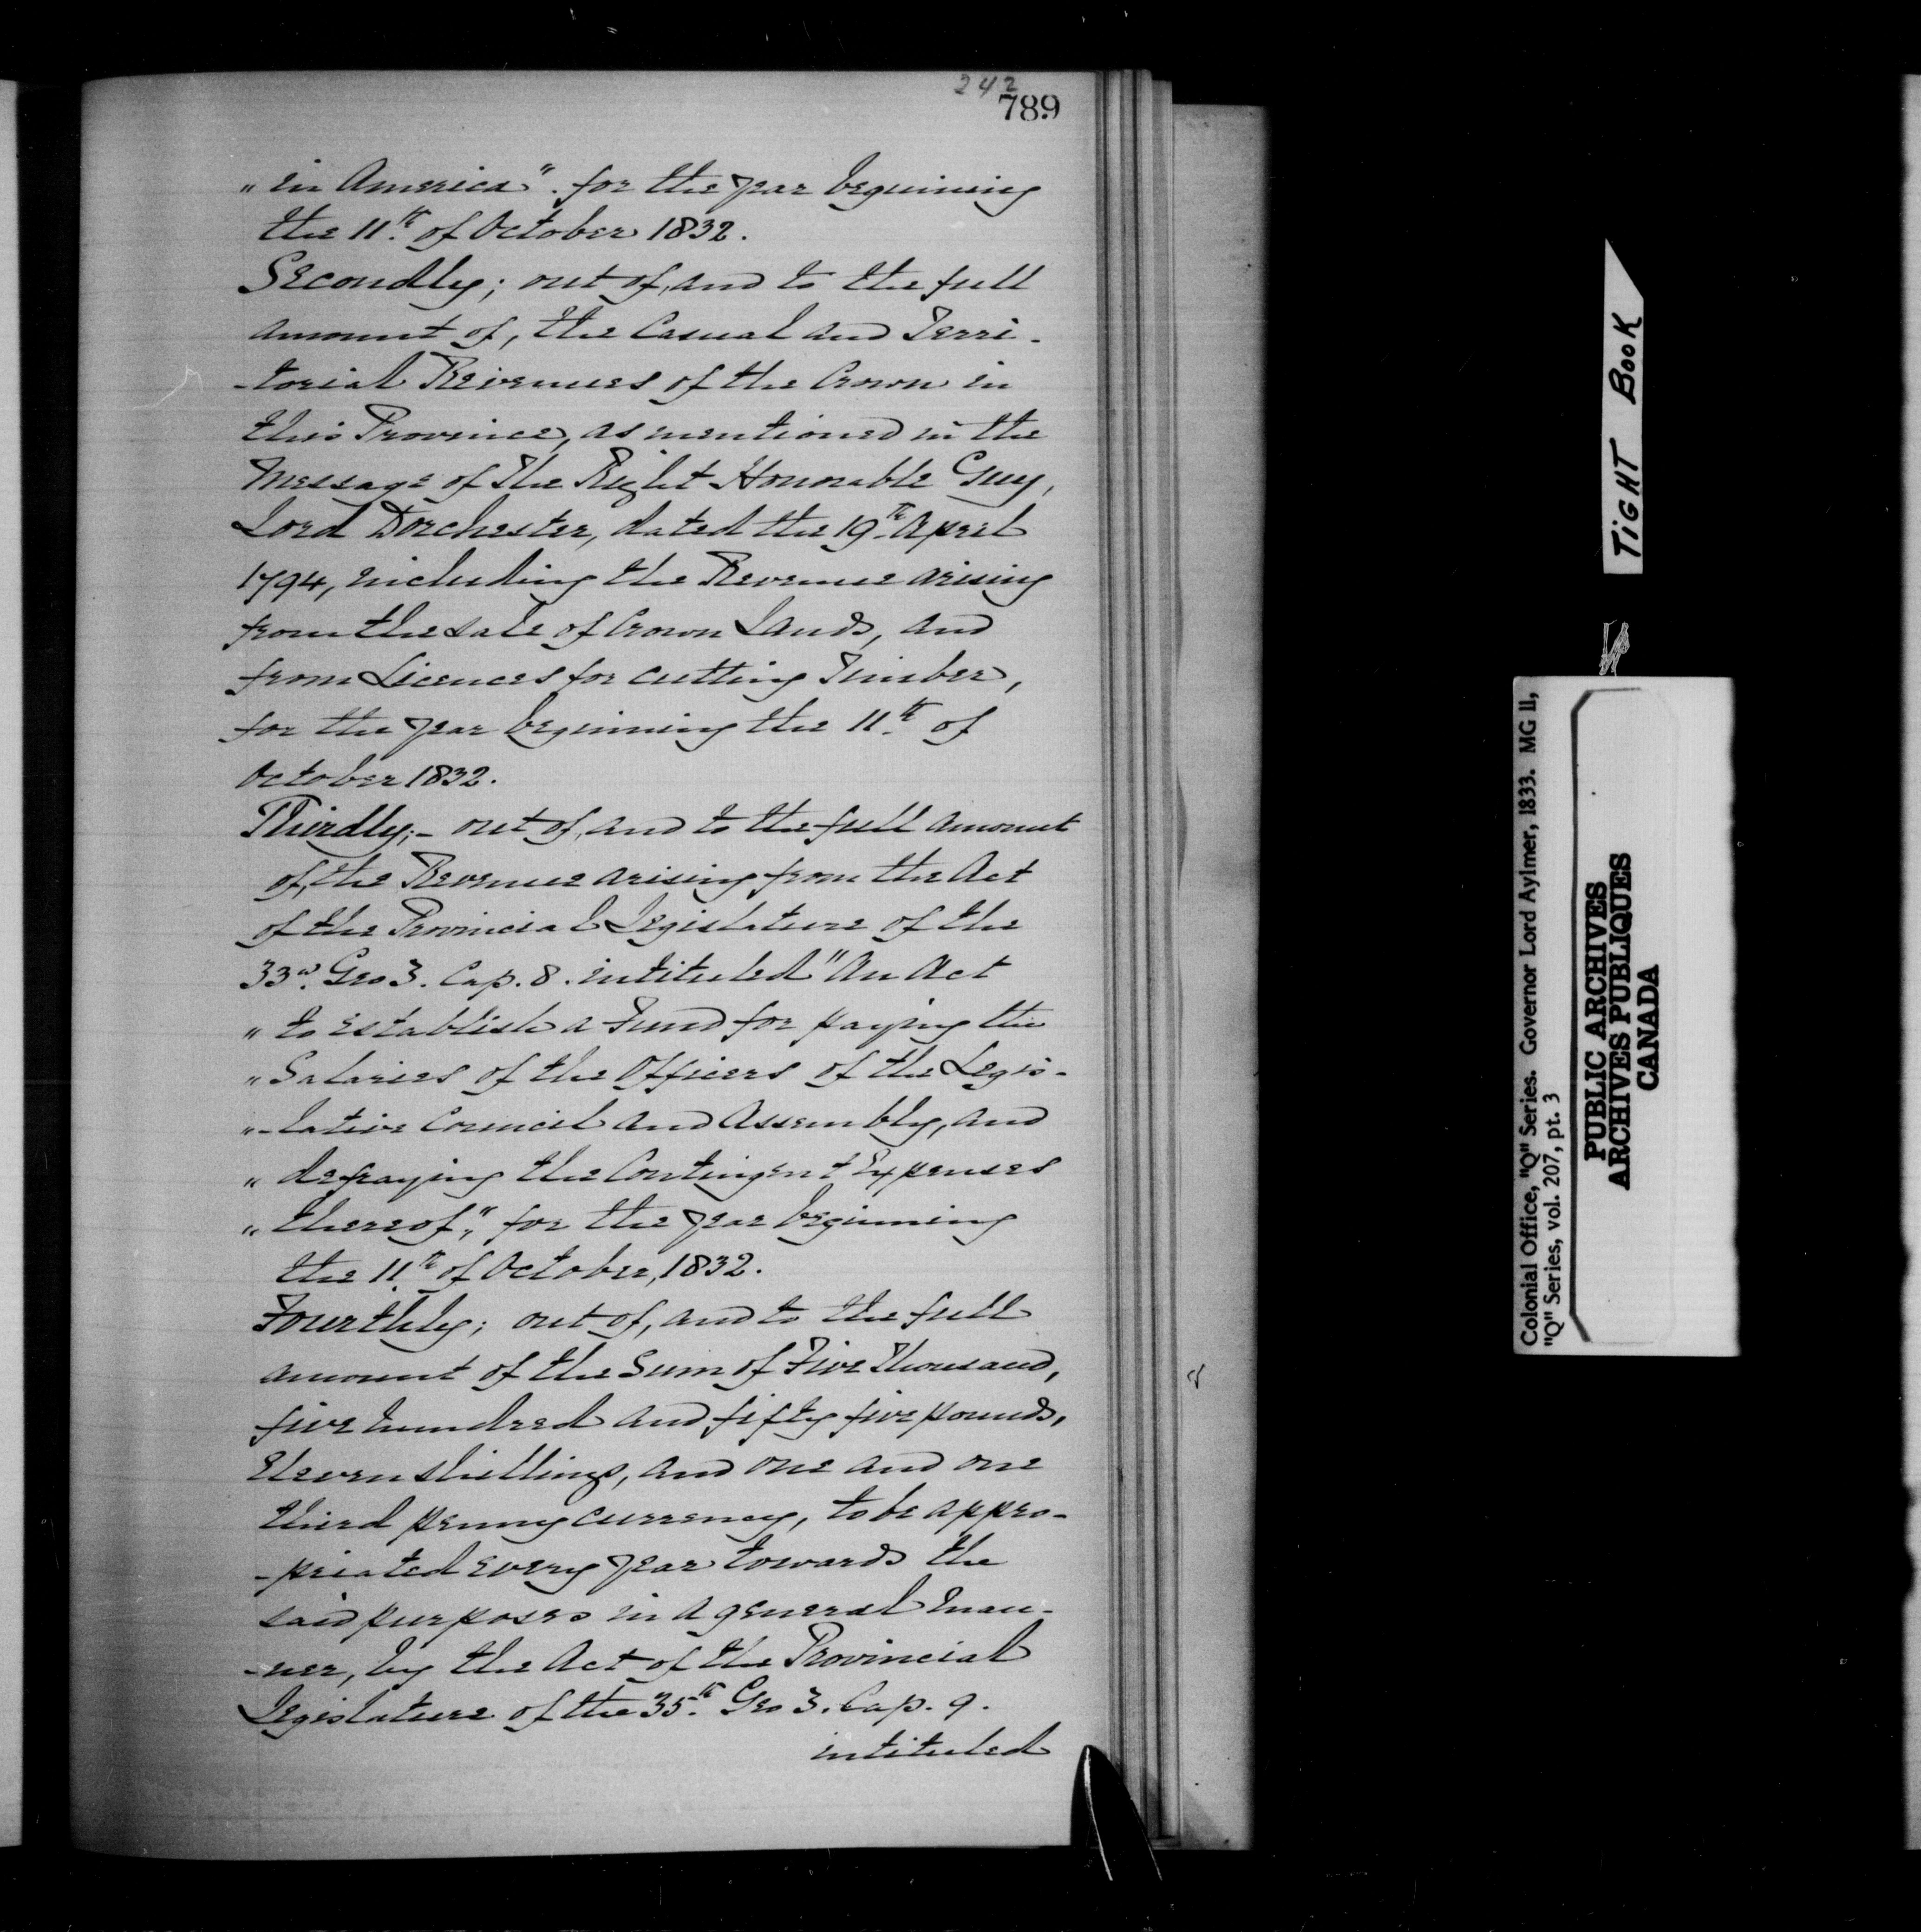 242
789
" in America". for the year beginning
the 11th. of October 1832.
Secondly; out of, and to the full
amount of, the Casual and Terri-
-torial Revenues of the Crown in
this Province, as mentioned in the
Message of the Right Honorable Guy,
Lord Dorchester, dated the 19th. April
1794, including the Revenue arising
from the sale of Crown Lands, and
from Licences for cutting Timber,
for the year beginning the 11th. of
October 1832.
Thirdly;- out of, and to the full amount
of, the Revenue arising from the Act
of the Provincial Legislature of the
33d. Geo 3. Cap. 8. intituled "An Act
" to establish a Fund for paying the
" Salaries of the Officers of the Legis-
"-lative Council and Assembly, and
" defraying the Contingent Expenses
" thereof", for the year beginning
the 11th. of October, 1832.
Fourthly; out of, and to the full
amount of the Sum of Five Thousand,
five hundred and fifty five pounds,
Eleven shillings, and one and one
third penny currency, to be appro-
-priated every year towards the
said purposes in a general man-
-ner, by the Act of the Provincial
Legislature of the 35th. Geo 3. Cap. 9.
intituled
TIGHT BOOK
Colonial Office, "Q" Series. Governor Lord Aylmer, 1833. MG 11,
"Q" Series, vol. 207, pt. 3
PUBLIC ARCHIVES
ARCHIVES PUBLIQUES
CANADA